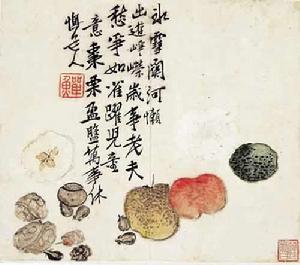 冰雪關河懶
出遊崢嶸歲事老夫
愁爭如雀躍兒童
意棗栗盈盤萬事休
懊道人